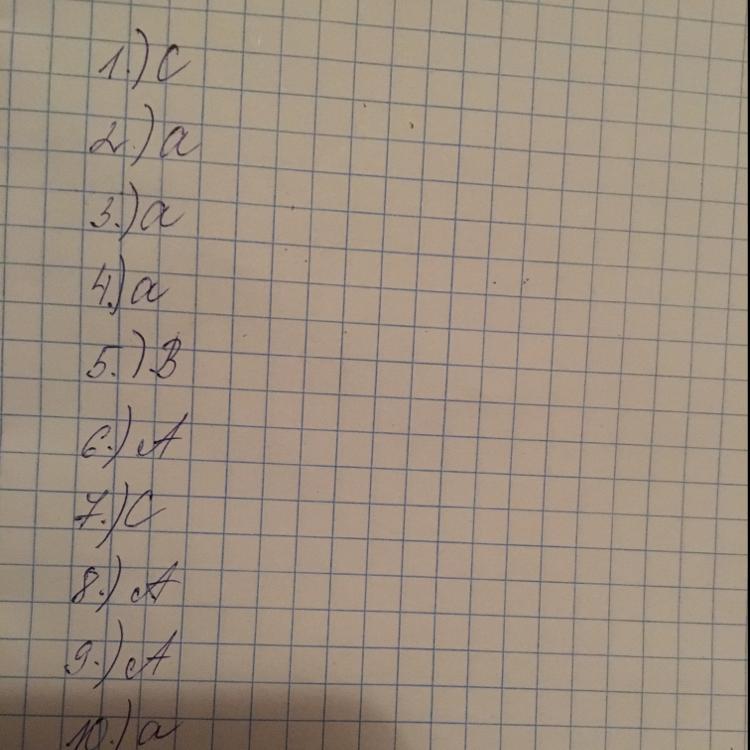 1.) C
2.) a
3.) a
4.) a
5.) B
6.) A
7.) C
8.) A
9.) A
10.) a